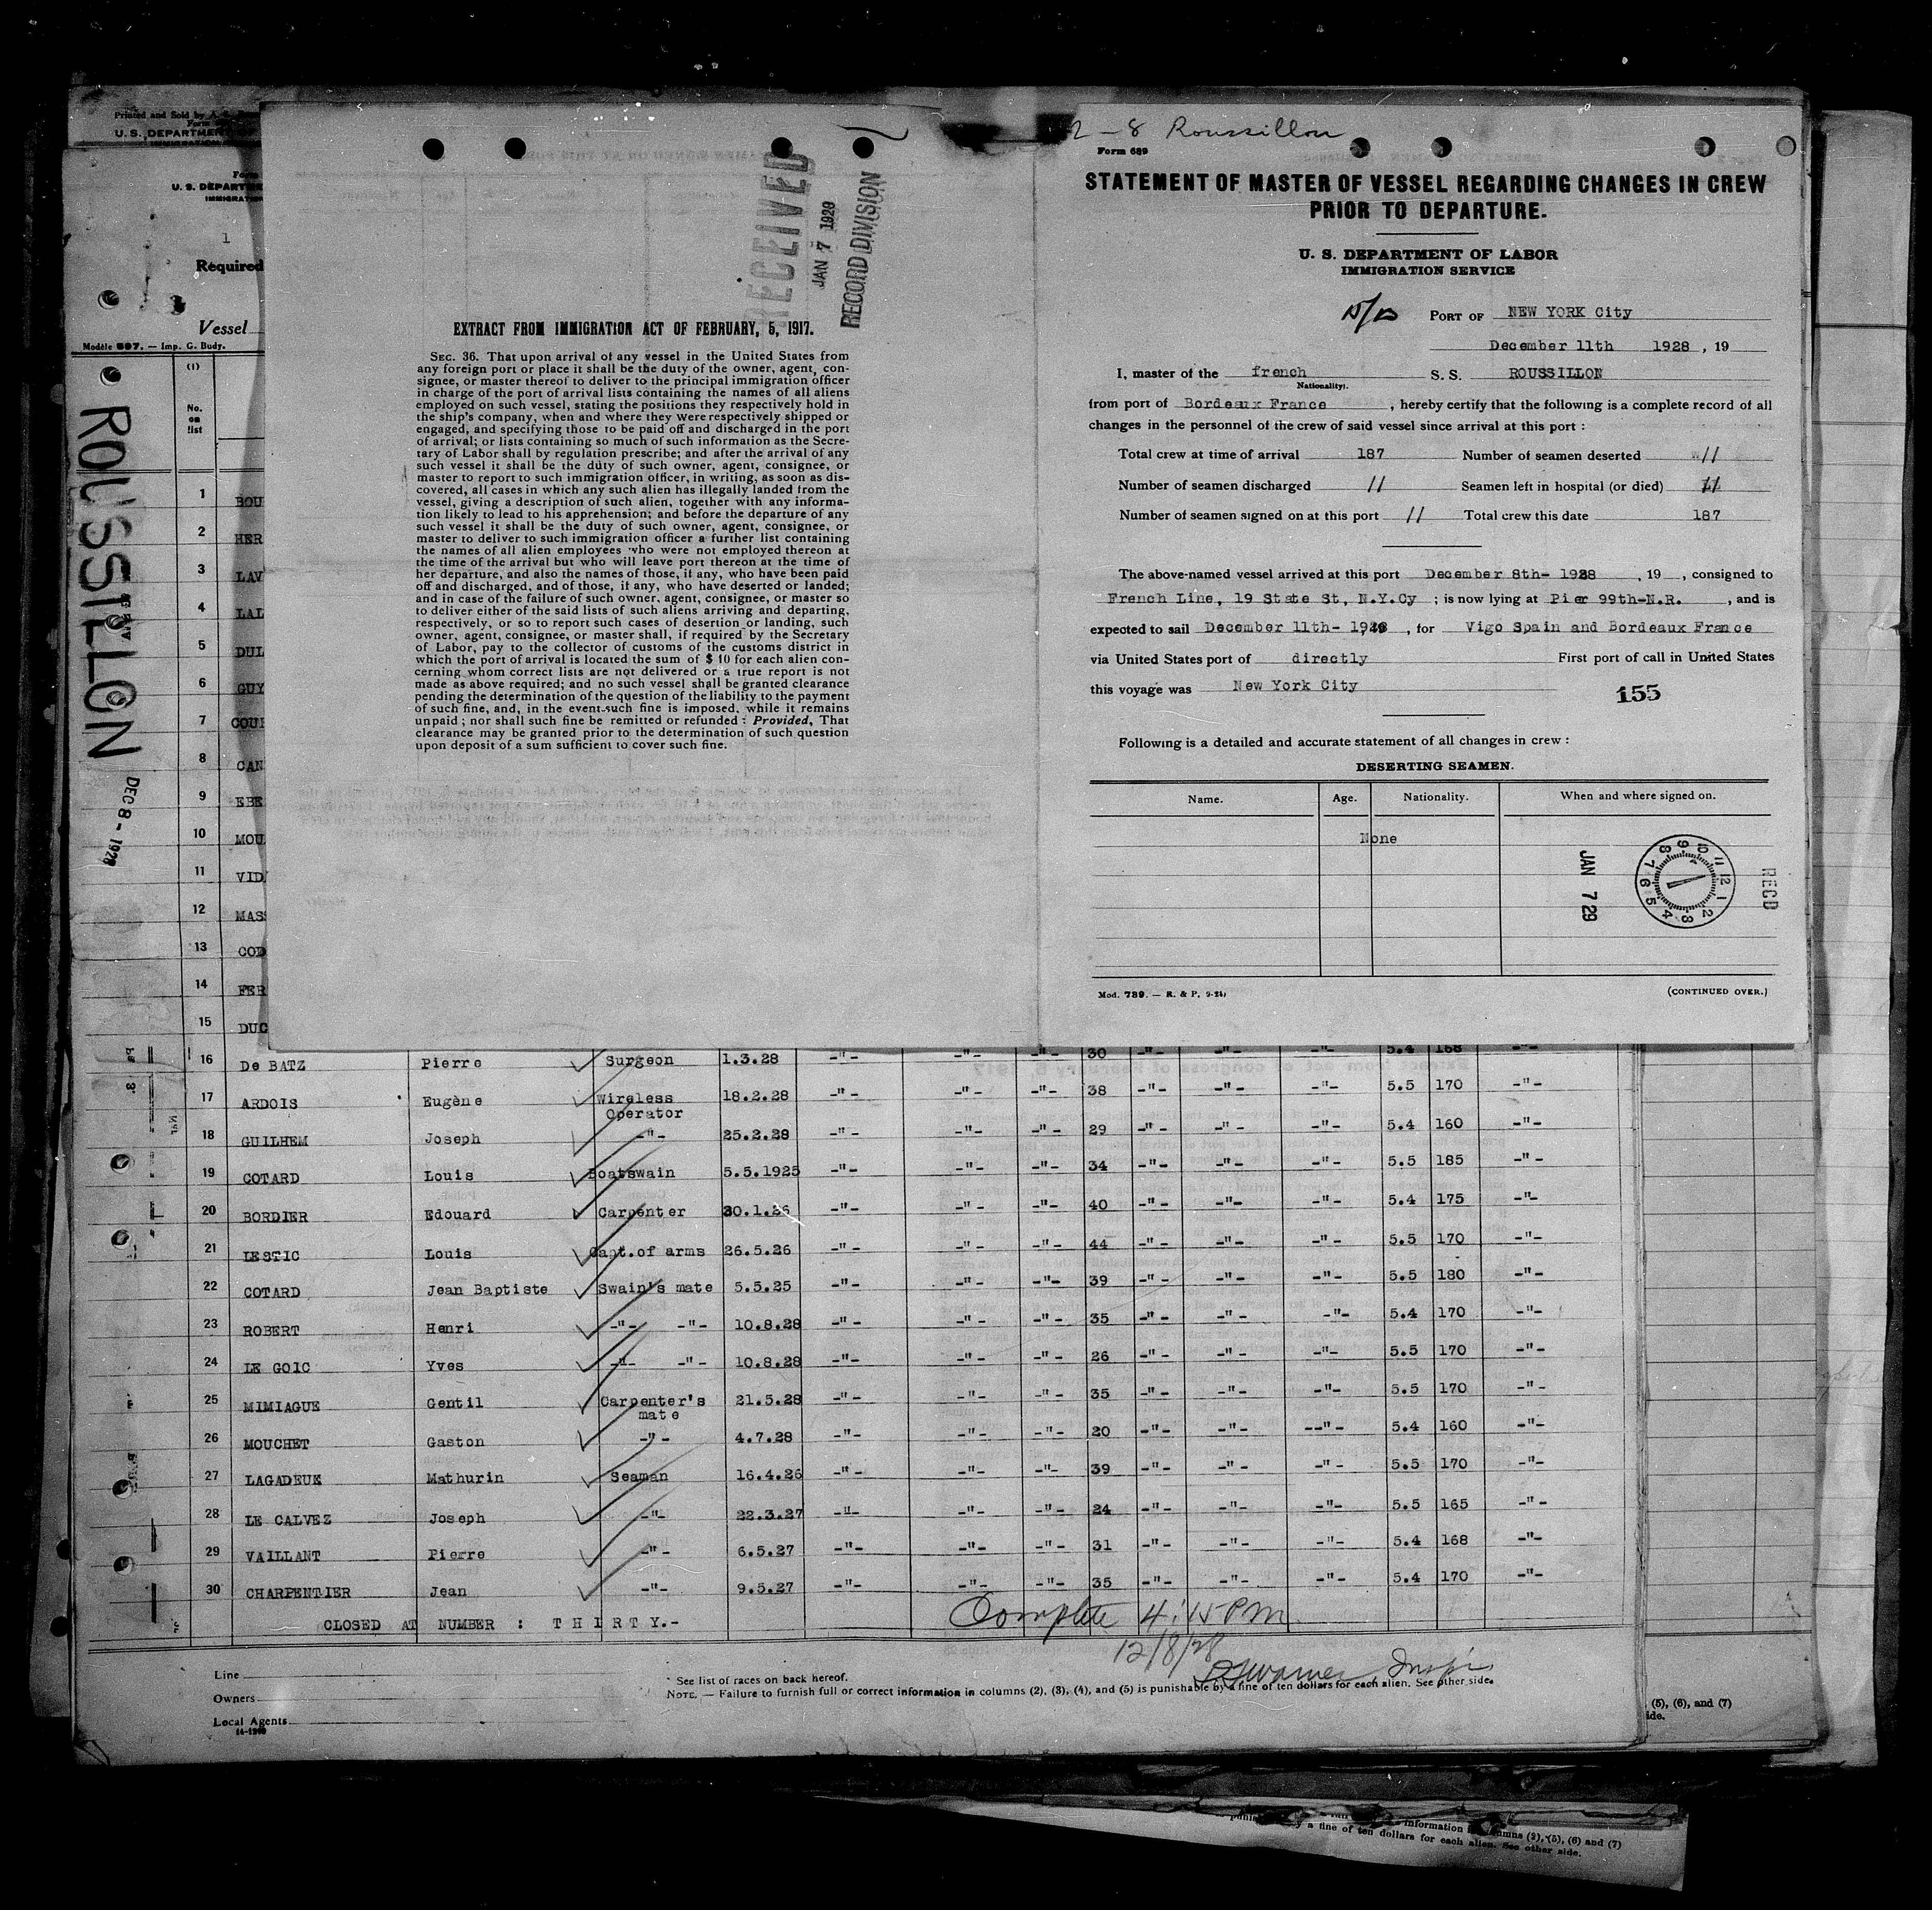 Printed and Sold by A.
Form
U. S. DEPARTMENT OF
IMMIGRATION
Form
U. S. DEPARTME
IMMIGRATION
1
Required
3
Vessel
Modèle 597. — Imp. G. Budy.
ROUSSILLON
DEC 8 - 1928
(1)
No.
on
list
1 BOU
2 HER
3 LAV
4 LAL
5 DUL
6 GUY
7 COUR
8 CAN
9 EBE
10 MOU
11 VID
12 MAS
13 COD
14 FER
15 DUC
RECEIVED
JAN 7 1929
RECORD DIVISION
EXTRACT FROM IMMIGRATION ACT OF FEBRUARY, 5, 1917.
SEC. 36. That upon arrival of any vessel in the United States from
any foreign port or place it shall be the duty of the owner, agent, con-
signee, or master thereof to deliver to the principal immigration officer
in charge of the port of arrival lists containing the names of all aliens
employed on such vessel, stating the positions they respectively hold in
the ship's company, when and where they were respectively shipped or
engaged, and specifying those to be paid off and discharged in the port
of arrival; or lists containing so much of such information as the Secre-
tary of Labor shall by regulation prescribe; and after the arrival of any
such vessel it shall be the duty of such owner, agent, consignee, or
master to report to such immigration officer, in writing, as soon as dis-
covered, all cases in which any such alien has illegally landed from the
vessel, giving a description of such alien, together with any informa-
tion likely to lead to his apprehension; and before the departure of any
such vessel it shall be the duty of such owner, agent, consignee, or
master to deliver to such immigration officer a further list containing
the names of all alien employees who were not employed thereon at
the time of the arrival but who will leave port thereon at the time of
her departure, and also the names of those, if any, who have been paid
off and discharged, and of those, if any, who have deserted or landed;
and in case of the failure of such owner, agent, consignee, or master so
to deliver either of the said lists of such aliens arriving and departing,
respectively, or so to report such cases of desertion or landing, such
owner, agent, consignee, or master shall, if required by the Secretary
of Labor, pay to the collector of customs of the customs district in
which the port of arrival is located the sum of $ 10 for each alien con-
cerning whom correct lists are not delivered or a true report is not
made as above required; and no such vessel shall be granted clearance
pending the determination of the question of the liability to the payment
of such fine, and, in the event such fine is imposed, while it remains
unpaid ; nor shall such fine be remitted or refunded : Provided, That
clearance may be granted prior to the determination of such question
upon deposit of a sum sufficient to cover such fine.
2 - 8 Roussillon
Form 689
STATEMENT OF MASTER OF VESSEL REGARDING CHANGES IN CREW
PRIOR TO DEPARTURE.
U. S. DEPARTMENT OF LABOR
IMMIGRATION SERVICE
PORT OF NEW YORK City
December 11th 1928 , 19
I, master of the french S. S. ROUSSILLON
Nationality.
from port of Bordeaux France , hereby certify that the following is a complete record of all
changes in the personnel of the crew of said vessel since arrival at this port :
Total crew at time of arrival 187 Number of seamen deserted //
Number of seamen discharged // Seamen left in hospital (or died) //
Number of seamen signed on at this port // Total crew this date 187
The above-named vessel arrived at this port December 8th- 1928 , 19 , consigned to
French Line, 19 State St, N.Y.Cy ; is now lying at Pier 99th-N.R. , and is
expected to sail December 11th- 1928 , for Vigo Spain and Bordeaux France
via United States port of directly First port of call in United States
this voyage was New York City
155
Following is a detailed and accurate statement of all changes in crew :
DESERTING SEAMEN.
Name. Age. Nationality. When and where signed on.
None
JAN 7 29
12 1 2 3 4 5 6 7 8 9 10 11
REC'D
Mod. 789. — R. & P. 9-24) (CONTINUED OVER.)
16 De BATZ Pierre Surgeon 1.3.28 -"- -"- -"- 30 -"- -"- -"- 5.4 168 -"-
17 ARDOIS Eugène Wireless 18.2.28 -"- -"- -"- 38 -"- -"- -"- 5.5 170 -"-
Operator
18 GUILHEM Joseph -"- 25.2.28 -"- -"- -"- 29 -"- -"- -"- 5.4 160 -"-
19 COTARD Louis Boatswain 5.5.1925 -"- -"- -"- 34 -"- -"- -"- 5.5 185 -"-
20 BORDIER Edouard Carpenter 30.1.26 -"- -"- -"- 40 -"- -"- -"- 5.4 175 -"-
21 LESTIC Louis Capt.of arms 26.5.26 -"- -"- -"- 44 -"- -"- -"- 5.5 170 -"-
22 COTARD Jean Baptiste Swain's mate 5.5.25 -"- -"- -"- 39 -"- -"- -"- 5.5 180 -"-
23 ROBERT Henri -"- -"- 10.8.28 -"- -"- -"- 35 -"- -"- -"- 5.4 170 -"-
24 LE GOIC Yves -"- -"- 10.8.28 -"- -"- -"- 26 -"- -"- -"- 5.5 170 -"-
25 MIMIAGUE Gentil Carpenter's 21.5.28 -"- -"- -"- 35 -"- -"- -"- 5.5 170 -"-
mate
26 MOUCHET Gaston -"- 4.7.28 -"- -"- -"- 20 -"- -"- --"- 5.4 160 -"-
27 LAGADEUE Mathurin Seaman 16.4.26 -"- -"- -"- 39 -"- -"- -"- 5.5 170 -"-
28 LE CALVEZ Joseph -"- 22.3.27 -"- -"- -"- 24 -"- -"- -"- 5.5 165 -"-
29 VAILLANT Pierre -"- 6.5.27 -"- -"- -"- 31 -"- -"- -"- 5.4 168 -"-
30 CHARPENTIER Jean -"- 9.5.27 -"- -"- -"- 35 -"- -"- -"- 5.4 170 -"-
CLOSED AT NUMBER : T H I R T Y.-
Complete 4:15 PM
12/8/28
Line
Owners
Local Agents
14-1240
* See list of races on back hereof.
NOTE. — Failure to furnish full or correct information in columns (2), (3), (4), and (5) is punishable by a fine of ten dollars for each alien. See other side.
(5), (6), and (7)
ide.
information in columns (2), (5), (6) and (7)
y a fine of ten dollars for each alien. See other side.